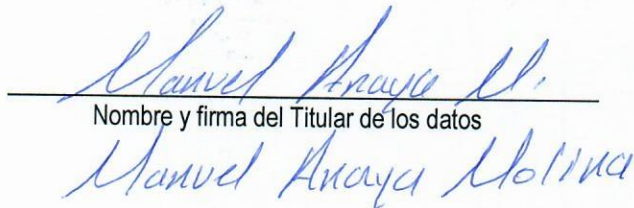 Manuel Anaya M.
Nombre y firma del Titular de los datos
Manuel Anaya Molina